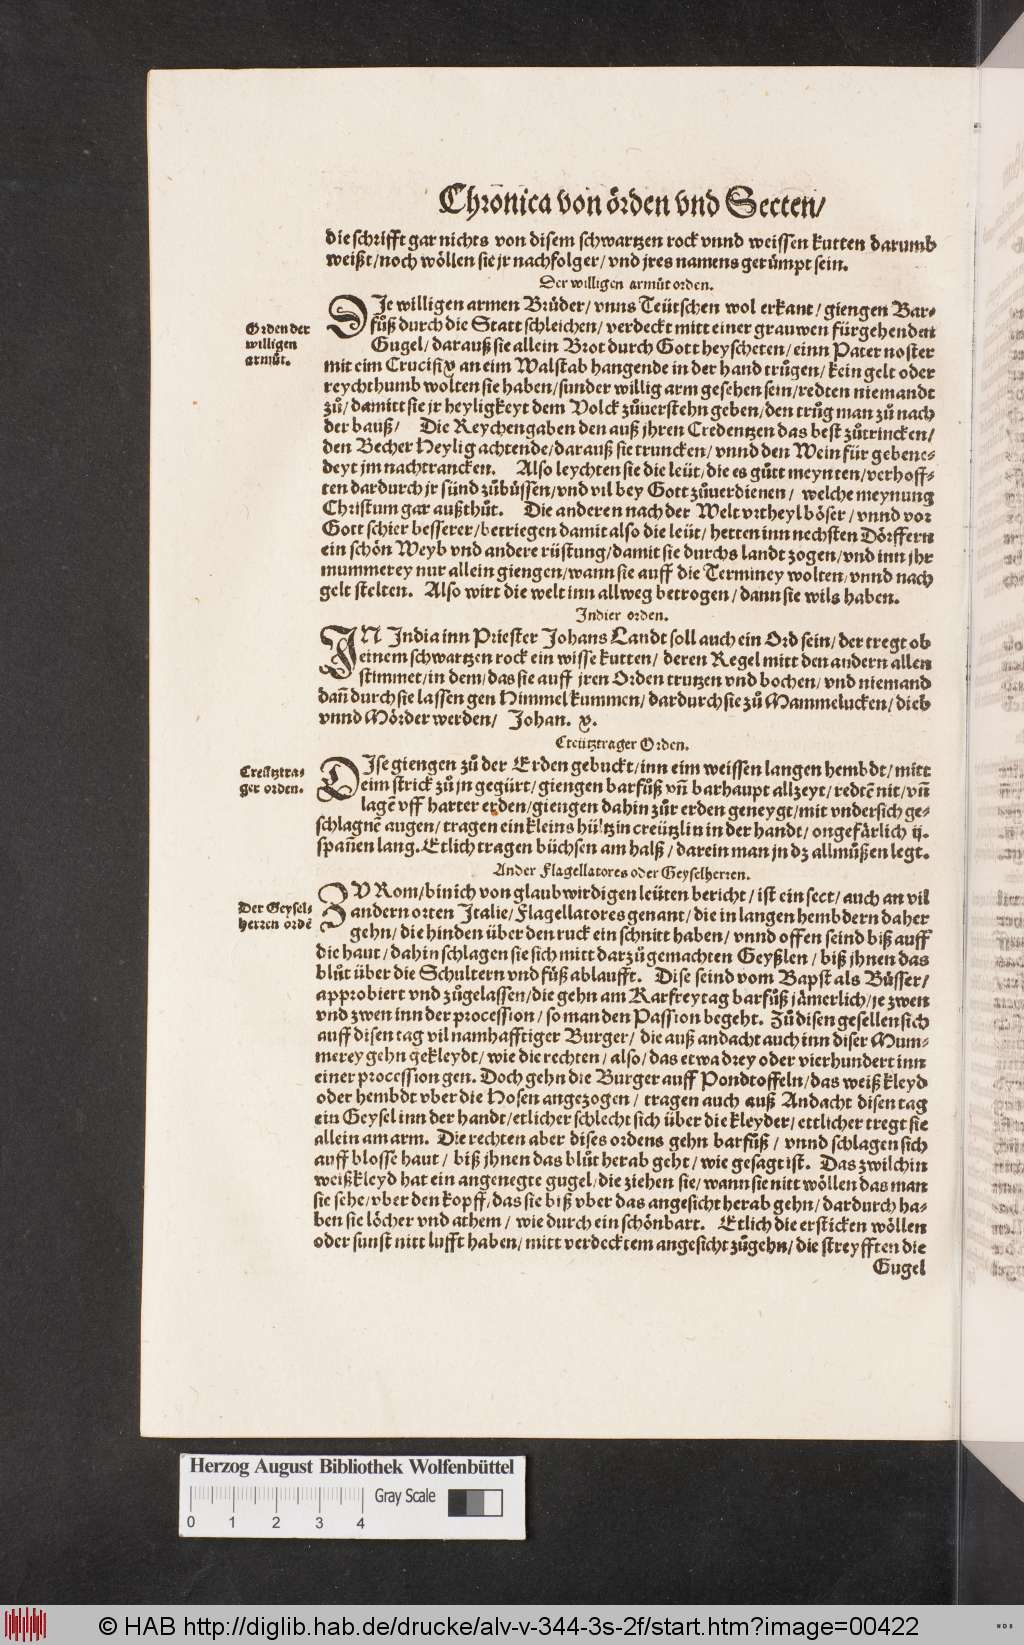 Chrōnica von örden vnd Secten/
die schrifft gar nichts von disem schwartzen rock vnnd weissen kutten darumb
weißt/noch wöllen sie jr nachfolger/vnd jres namens gerůmpt sein.
Der willigen armůt orden.
Orden der
willigen
armůt.
DIe willigen armen Brůder/vnns Teütschen wol erkant/giengen Bar-
fůß durch die Statt schleichen/verdeckt mitt einer grauwen fürgehenden
Gugel/darauß sie allein Brot durch Gott heyscheten/einn Pater noster
mit eim Crucifix an eim Walstab hangende in der hand trůgen/kein gelt oder
reychthumb wolten sie haben/sunder willig arm gesehen sein/redten niemandt
zů/damitt sie jr heyligkeyt dem Volck zůuerstehn geben/den trůg man zů nach
der bauß/ Die Reychen gaben den auß jhren Credentzen das best zůtrincken/
den Becher Heylig achtende/darauß sie truncken/vnnd den Wein für gebene-
deyt jm nachtrancken. Also leychten sie die leüt/die es gůtt meynten/verhoff-
ten dardurch jr sünd zůbůssen/vnd vil bey Gott zůuerdienen/welche meynung
Christum gar außthůt. Die anderen nach der Welt vrtheyl böser/vnnd vor
Gott schier besserer/betriegen damit also die leüt/hetten inn nechsten Dörffern
ein schön Weyb vnd andere rüstung/damit sie durchs landt zogen/vnd inn jhr
mummerey nur allein giengen/wann sie auff die Terminey wolten/vnnd nach
gelt stelten. Also wirt die welt inn allweg betrogen/dann sie wils haben.
Indier orden.
IN India inn Priester Johans Landt soll auch ein Ord sein/der tregt ob
einem schwartzen rock ein wisse kutten/deren Regel mitt den andern allen
stimmet/in dem/das sie auff jren Orden trutzen vnd bochen/vnd niemand
dañ durch sie lassen gen Himmel kummen/dardurch sie zů Mammelucken/dieb
vnnd Mörder werden/ Johan. x.
Creütztrager Orden.
Creütztra-
ger orden.
DIse giengen zů der Erden gebuckt/inn eim weissen langen hembdt/mitt
eim strick zů jn gegürt/giengen barfůß vñ barhaupt allzeyt/redtē nit/vñ
lagē vff harter erden/giengen dahin zůr erden geneygt/mit vndersich ge-
schlagnē augen/tragen ein kleins hültzin creützlin in der handt/ongefärlich ij.
spañen lang. Etlich tragen büchsen am halß/darein man jn dz allmůßen legt.
Ander Flagellatores oder Geyselherren.
Der Geysel-
herren ordē
ZV Rom/bin ich von glaubwirdigen leüten bericht/ist ein sect/auch an vil
andern orten Italie/Flagellatores genant/die in langen hembdern daher
gehn/die hinden über den ruck ein schnitt haben/vnnd offen seind biß auff
die haut/dahin schlagen sie sich mitt darzů gemachten Geyßlen/biß jhnen das
blůt über die Schultern vnd fůß ablaufft. Dise seind vom Bapst als Büsser/
approbiert vnd zůgelassen/die gehn am Karfreytag barfůß jämerlich/je zwen
vnd zwen inn der procession/so man den Passion begeht. Zů disen gesellen sich
auff disen tag vil namhafftiger Burger/die auß andacht auch inn diser Mum-
merey gehn gekleydt/wie die rechten/also/das etwa drey oder vierhundert inn
einer procession gen. Doch gehn die Burger auff Pondtoffeln/das weiß kleyd
oder hembdt vber die Hosen angezogen/tragen auch auß Andacht disen tag
ein Geysel inn der handt/etlicher schlecht sich über die kleyder/ettlicher tregt sie
allein am arm. Die rechten aber dises ordens gehn barfůß/vnnd schlagen sich
auff blosse haut/biß jhnen das blůt herab geht/wie gesagt ist. Das zwilchin
weiß kleyd hat ein angenegte gugel/die ziehen sie/wann sie nitt wöllen das man
sie sehe/vber den kopff/das sie biß vber das angesicht herab gehn/dardurch ha-
ben sie löcher vnd athem/wie durch ein schönbart. Etlich die ersticken wöllen
oder sunst nitt lufft haben/mitt verdecktem angesicht zůgehn/die streyfften die
Gugel
Herzog August Bibliothek Wolfenbüttel
Gray Scale
0 1 2 3 4
© HAB http://diglib.hab.de/drucke/alv-v-344-3s-2f/start.htm?image=00422